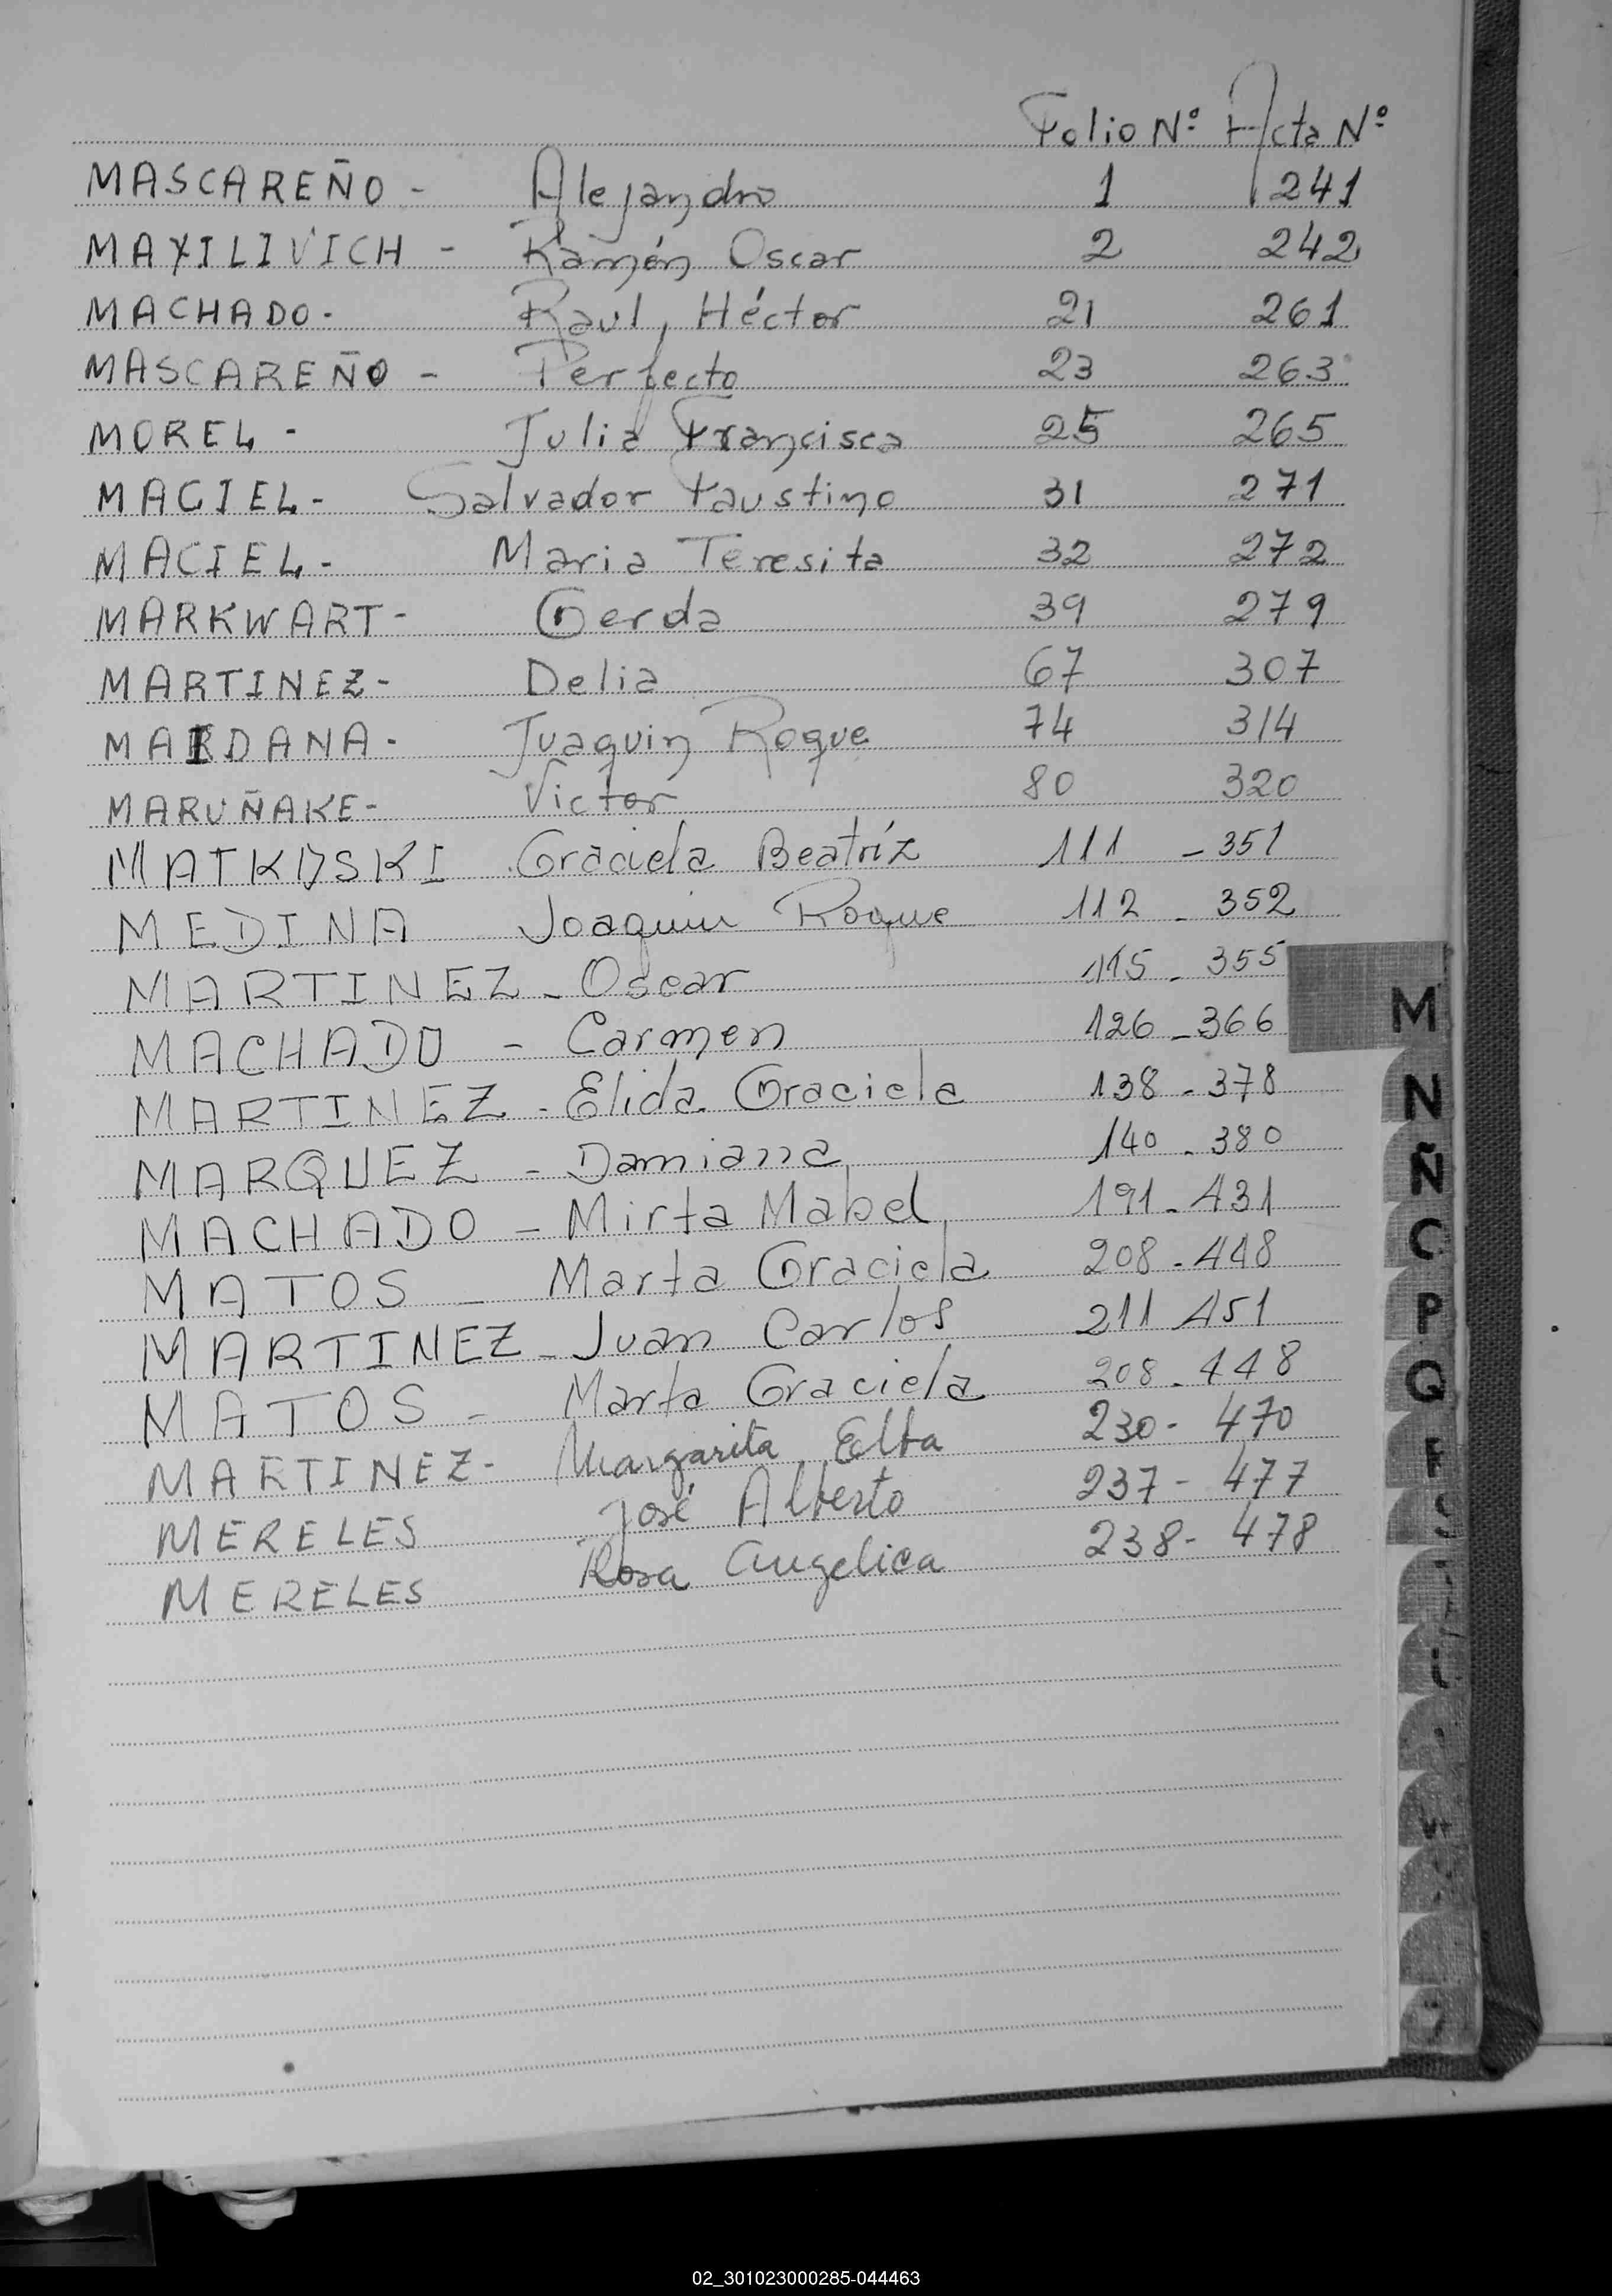 Folio Nº Acta Nº
MASCAREÑO - Alejandro 1 241
MAXILIVICH - Ramón Oscar 2 242
MACHADO - Raul, Héctor 21 261
MASCAREÑO - Perfecto 23 263
MOREL - Julia Francisca 25 265
MACIEL - Salvador Faustino 31 271
MACIEL - Maria Teresita 32 272
MARKWART - Gerda 39 279
MARTINEZ - Delia 67 307
MAIDANA - Juaquin Roque 74 314
MARUÑAKE - Victor 80 320
Graciela Beatríz 111 - 351
MEDINA Joaquin Roque 112 - 352
MARTINEZ - Oscar 115 - 355
MACHADO - Carmen 126 - 366
MARTINEZ - Elida Graciela 138 - 378
MARQUEZ - Damiana 140 - 380
MACHADO - Mirta Mabel 191 - 431
MATOS - Marta Graciela 208 - 448
MARTINEZ - Juan Carlos 211 451
MATOS - Marta Graciela 208 - 448
MARTINEZ - Margarita Elba 230 - 470
MERELES José Alberto 237 - 477
MERELES Rosa Angelica 238 - 478
M
N
Ñ
C
P
Q
02_301023000285-044463